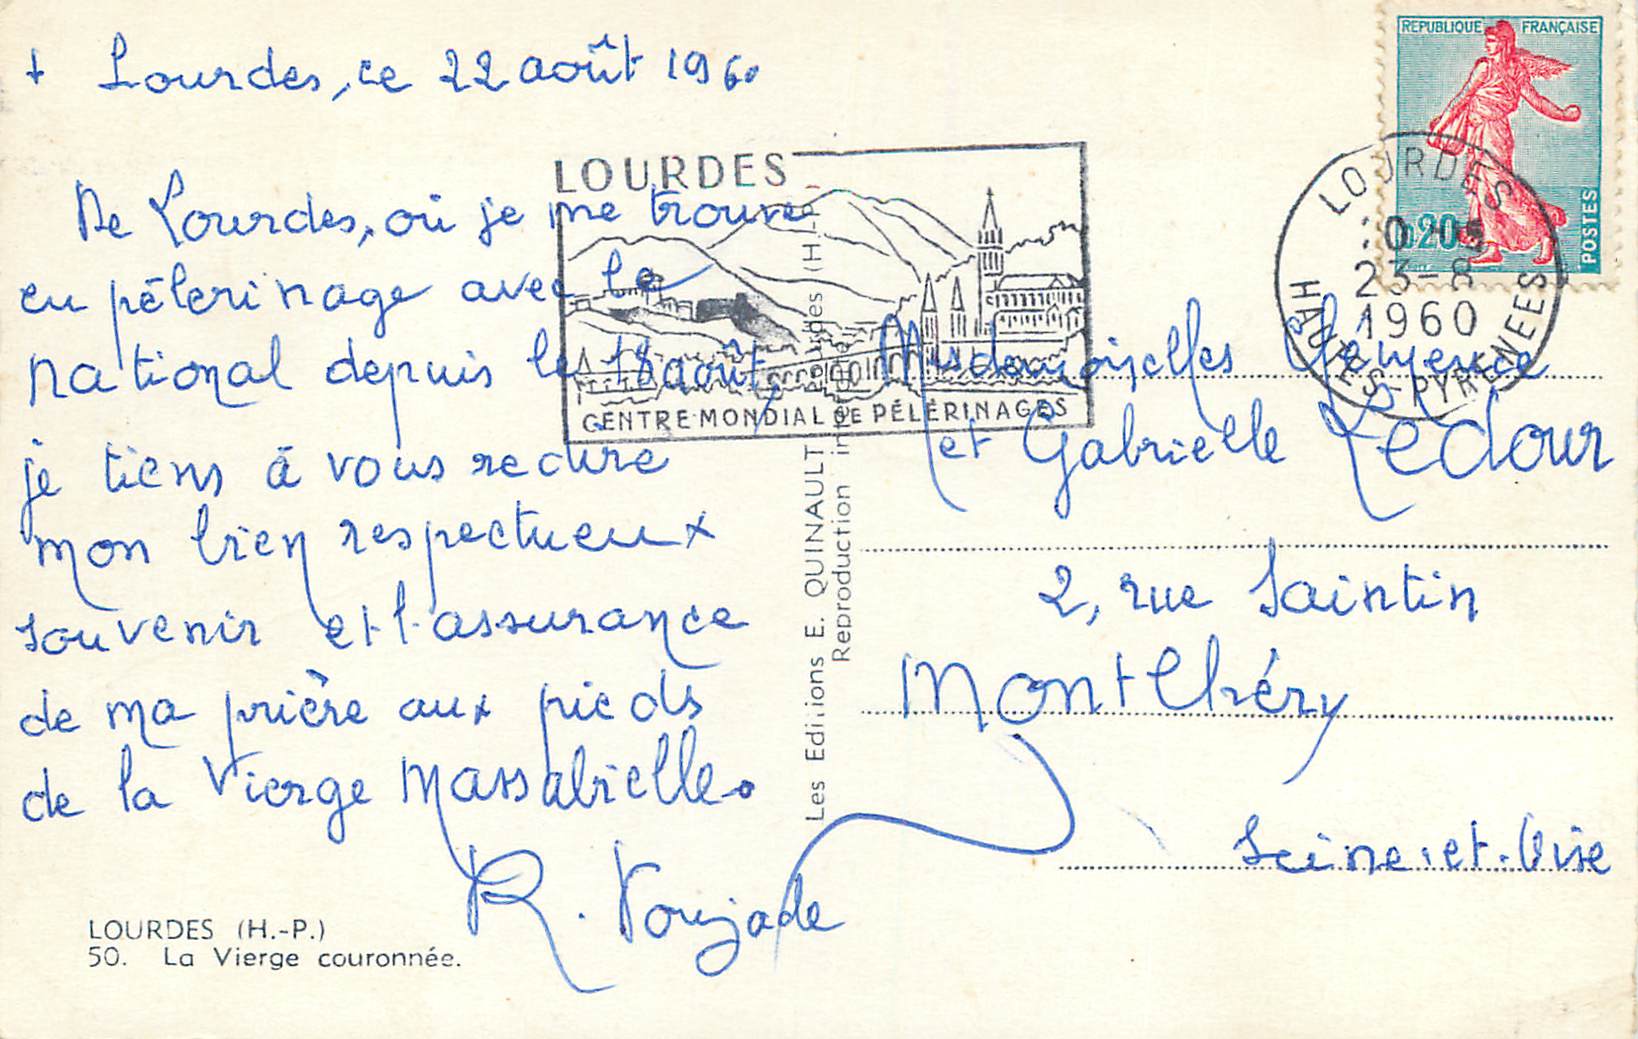 + Lourdes, ce 22 août 1960
De Lourdes, où je me trouve
en pélerinage avec le
National depuis le 18 août,
je tiens à vous redire
mon bien respectueux
souvenir et l'assurance
de ma prière aux pieds
de la Vierge Massabielle.
R.
LOURDES (H.-P.)
50. La Vierge couronnée.
LOURDES
CENTRE MONDIAL DE PÉLÉRINAGES
Les Editions E. QUINAULT
Reproduction
REPUBLIQUE FRANÇAISE
0,20
POSTES
LOURDES
23-8
1960
HAUTES-PYRENEES
Mesdemoiselles Clémence
et Gabrielle Ledour
2, rue Saintin
Montlhéry
Seine-et-Oise